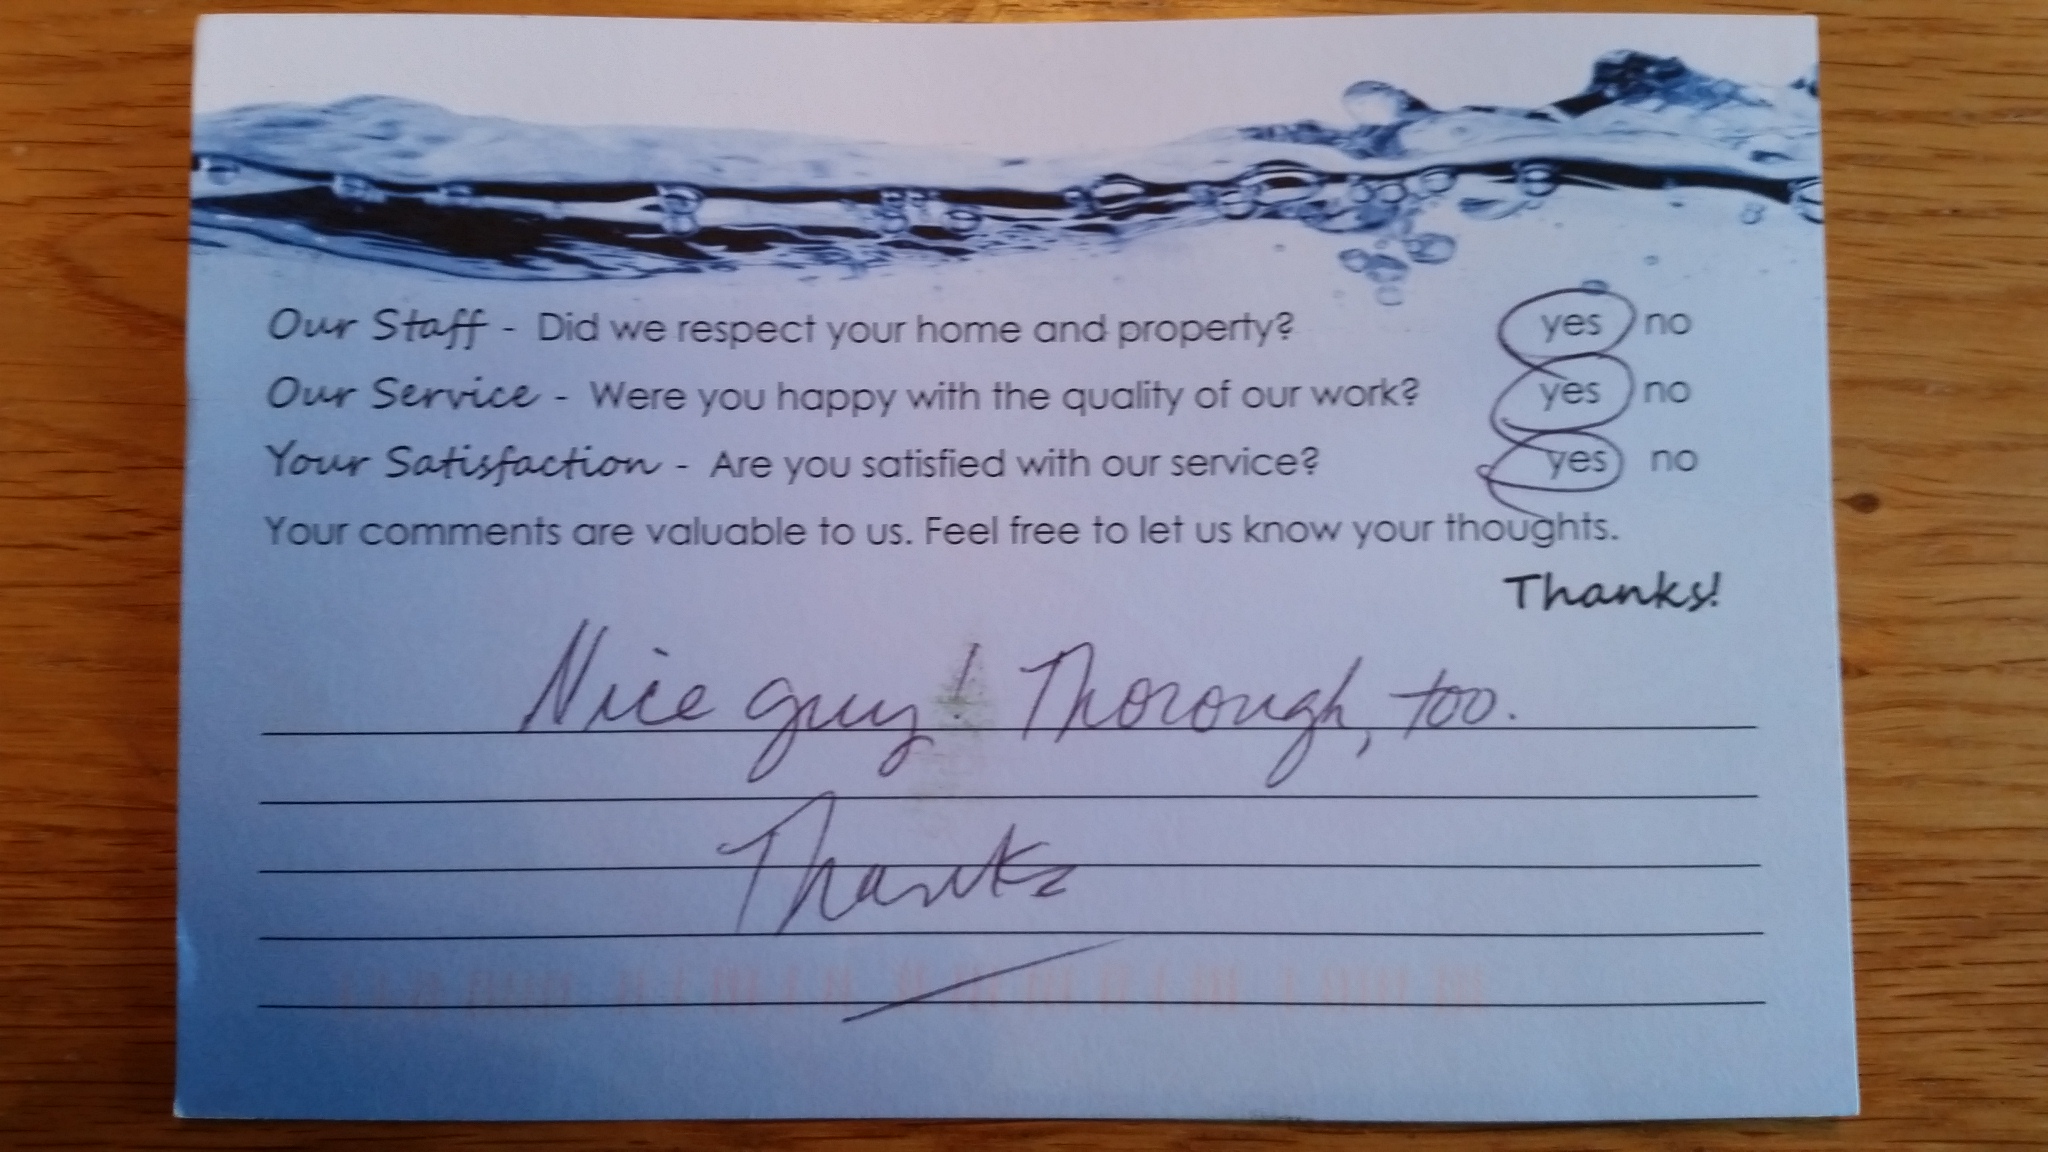 Our Staff - Did we respect your home and property? yes no
Our Service - Were you happy with the quality of our work? yes no
Your Satisfaction - Are you satisfied with our service? yes no
Your comments are valuable to us. Feel free to let us know your thoughts.
Thanks!
Nice guy! Thorough, too.
Thanks